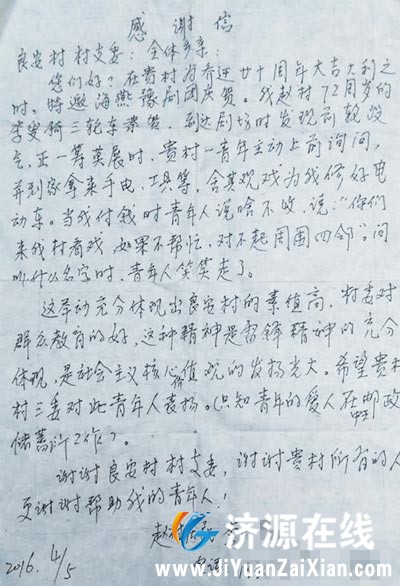 感谢信
良安村村支委:全体乡亲:
您们好?在贵村乔迁廿十周年大吉大利之
时,特邀海燕豫剧团庆贺。我赵村72周岁的
李 骑三轮车来贵,到达剧场时发现前轮没
气,正一筹莫展时,贵村一青年主动上前询问,
并到家拿来手电、工具等,舍其观戏为我修好电
动车。当我付钱时青年人说啥不收,说:“你们
来我村看戏,如果不帮忙,对不起周围四邻”。问
叫什么名字时,青年人笑笑走了。
这举动充分体现出良安村的素值高,村委对
群众教育的好,这种精神是雷锋精神的充分
体现,是社会主义核心价值观的发扬光大。希望贵村
村三委对此青年人表扬。(只知青年的爱人在邮政
储蓄所工作)。
谢谢良安村村支委,谢谢贵村所有的人
更谢谢帮助我的青年人!
赵村
2016.4/5
济源在线
www.JiYuanZaiXian.com